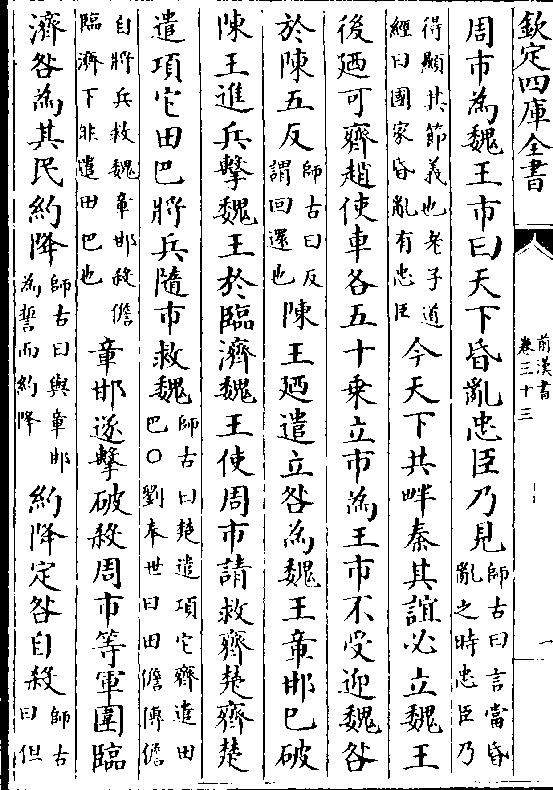 欽定四庫全書
前漢書
卷三十三
一
周市為魏王市曰天下昏亂忠臣乃見師古曰言當昏亂之時忠臣乃
得顯其節義也老子道經曰國家昏亂有忠臣今天下共畔秦其誼必立魏王
後廼可齊趙使車各五十乗立市為王市不受迎魏咎
於陳五反師古曰反謂回還也陳王廼遣立咎為魏王章邯已破
陳王進兵擊魏王於臨濟魏王使周市請救齊楚齊楚
遣項它田巴將兵隨市救魏師古曰楚遣項它齊遣田巴○劉奉世曰田儋傳儋
自將兵救魏章邯殺儋臨濟下非遣田巴也章邯遂擊破殺周市等軍圍臨
濟咎為其民約降師古曰與章邯為誓而約降約降定咎自殺師古曰但